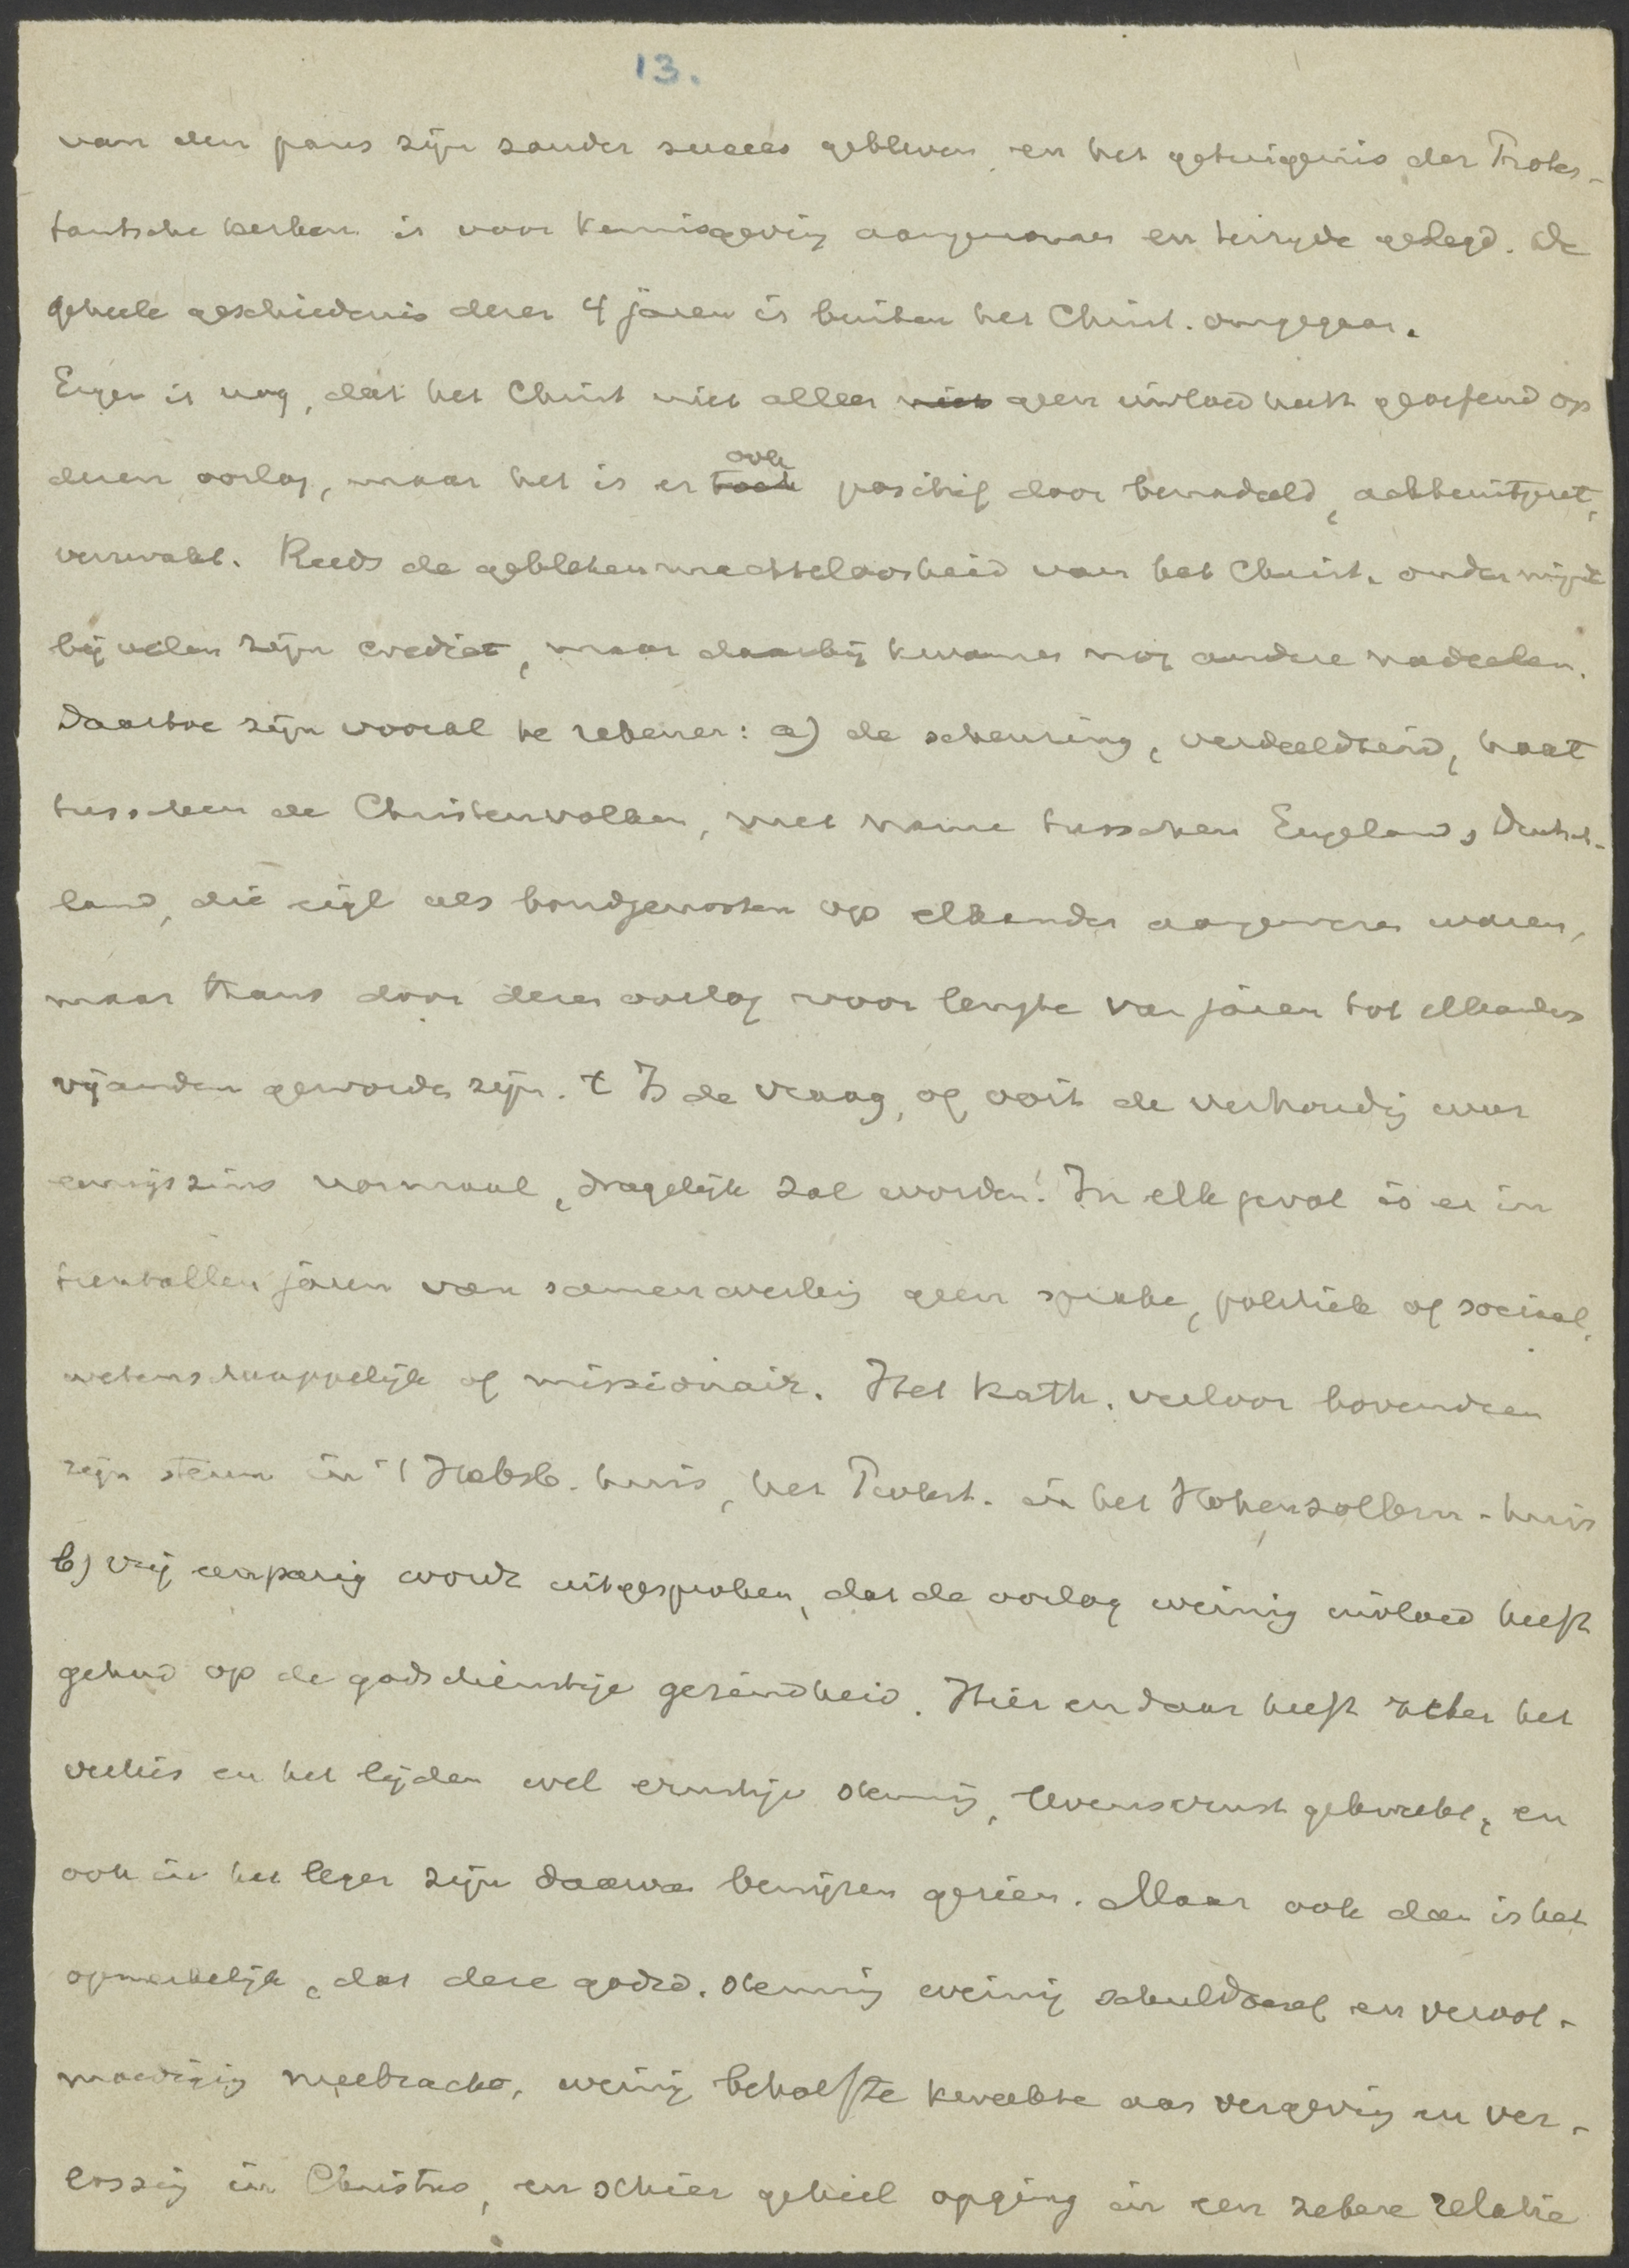 13.
van den paus zijn zonder succes gebleven, en het getuigenis der Protes-
tantsche kerken is voor kennisgeving aangenomen en terzijde gelegd. De
geheele geschiedenis dezer 4 jaren is buiten het Christ. omgegaan.
Erger is nog, dat het Christ niet alleen niet geen invloed heeft geoefend op
dezen oorlog, maar het is er toch ook positief door benadeeld, achteruitgezet,
verzwakt. Reeds de gebleken machteloosheid van het Christ. ondermijnde
bij velen zijn crediet, maar daarbij kwamen nog andere nadeelen.
Daartoe zijn vooral te rekenen: a) de scheuring, verdeeldheid, haat
tusschen de Christenvolken, met name tusschen Engeland, Duitsch-
land, die eigl als bondgenooten op elkander aangewezen waren,
maar thans door dezen oorlog voor lengte van jaren tot elkanders
vijanden geworden zijn. 't Is de vraag, of ooit de verhouding weer
eenigszins normaal, dragelijk zal worden! In elk geval is er in
tientallen jaren van samenwerking geen sprake, politiek of sociaal,
wetenschappelijk of missionair. Het Kath. verloor bovendien
zijn steun in 't Habsb. huis, het Protest. in het Hohenzollern-huis
b) vrij eenparig wordt uitgesproken, dat de oorlog weinig invloed heeft
gehad op de godsdienstige gezindheid. Hier en daar heeft zeker het
verlies en het lijden wel ernstige stemming, levensernst gekweekt, en
ook in het leger zijn daarvan bewijzen gezien. Maar ook dan is het
opmerkelijk, dat deze godsd. stemming weinig schuldbesef en veroot-
moediging meebracht, weinig behoefte kweekte aan vergeving en ver-
lossing in Christus, en schier geheel opging in een zekere relatie